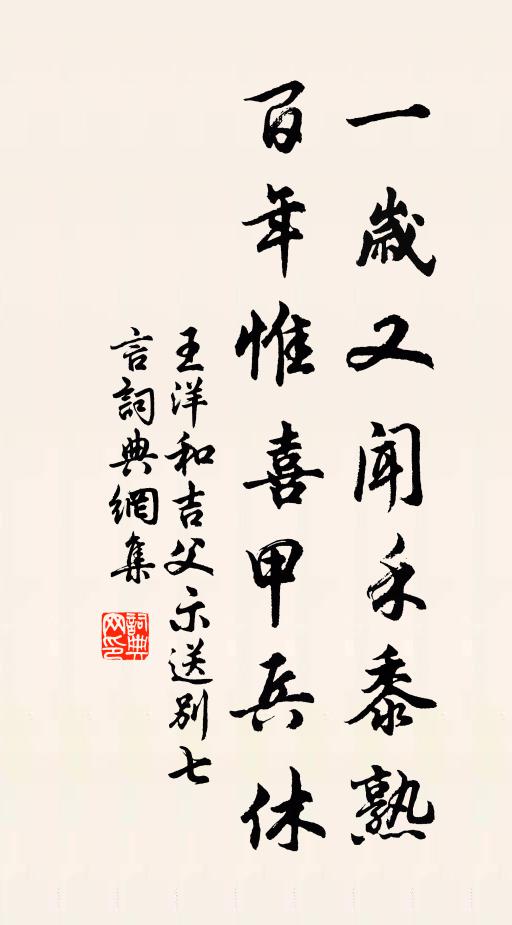 一歲又闻禾黍熟
百年惟喜甲兵休
王洋和吉父示送别七
言詞典網集
詞典
网印